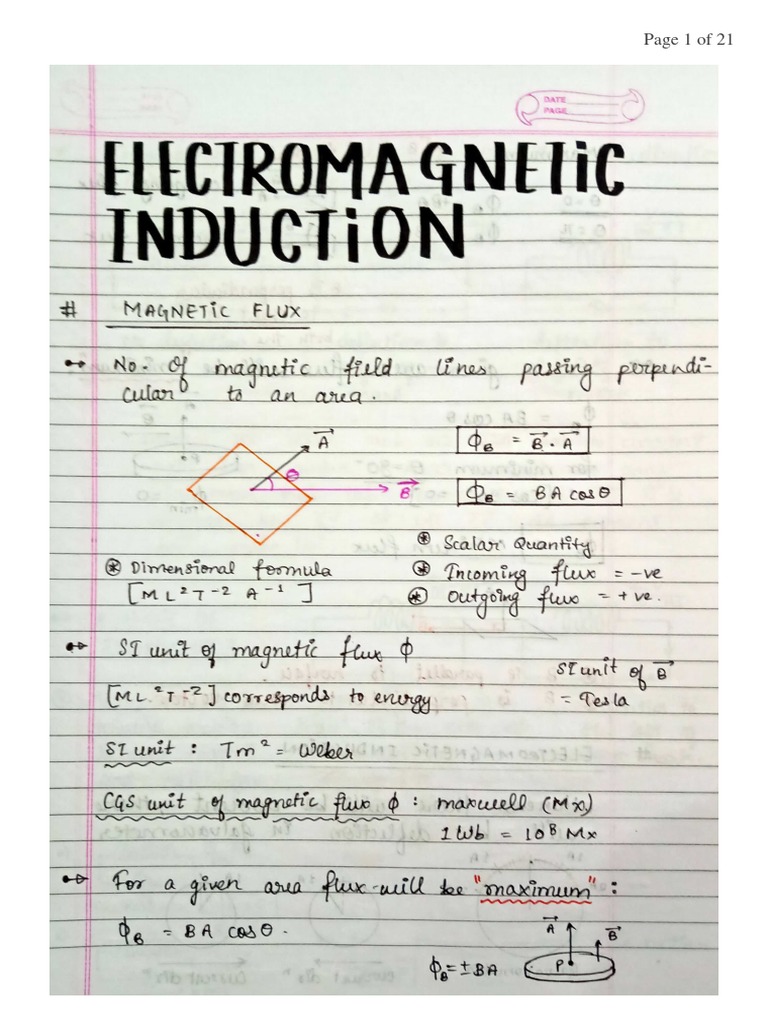 Page 1 of 21
DATE
PAGE
ELECTROMAGNETiC
INDUCTiON
# MAGNETiC FLUX
No. Of magnetic field lines passing perpendi-
cular to an area.
A⃗
θ
B⃗
ϕB = B⃗ . A⃗
ϕB = BA cosθ
⊛ Scalar Quantity
⊛ Dimensional formula
[ML²T⁻²A⁻¹]
⊛ Incoming flux = -ve
⊛ Outgoing flux = +ve.
SI unit of magnetic flux ϕ
[ML²T⁻²] corresponds to energy
SI unit of B⃗
= Tesla
SI unit : Tm² = Weber
CGS unit of magnetic flux ϕ : maxwell (Mx)
1 Wb = 10⁸ Mx
For a given area flux will be "maximum" :
ϕB = BA cosθ.
A⃗
B⃗
P
ϕB = ±BA